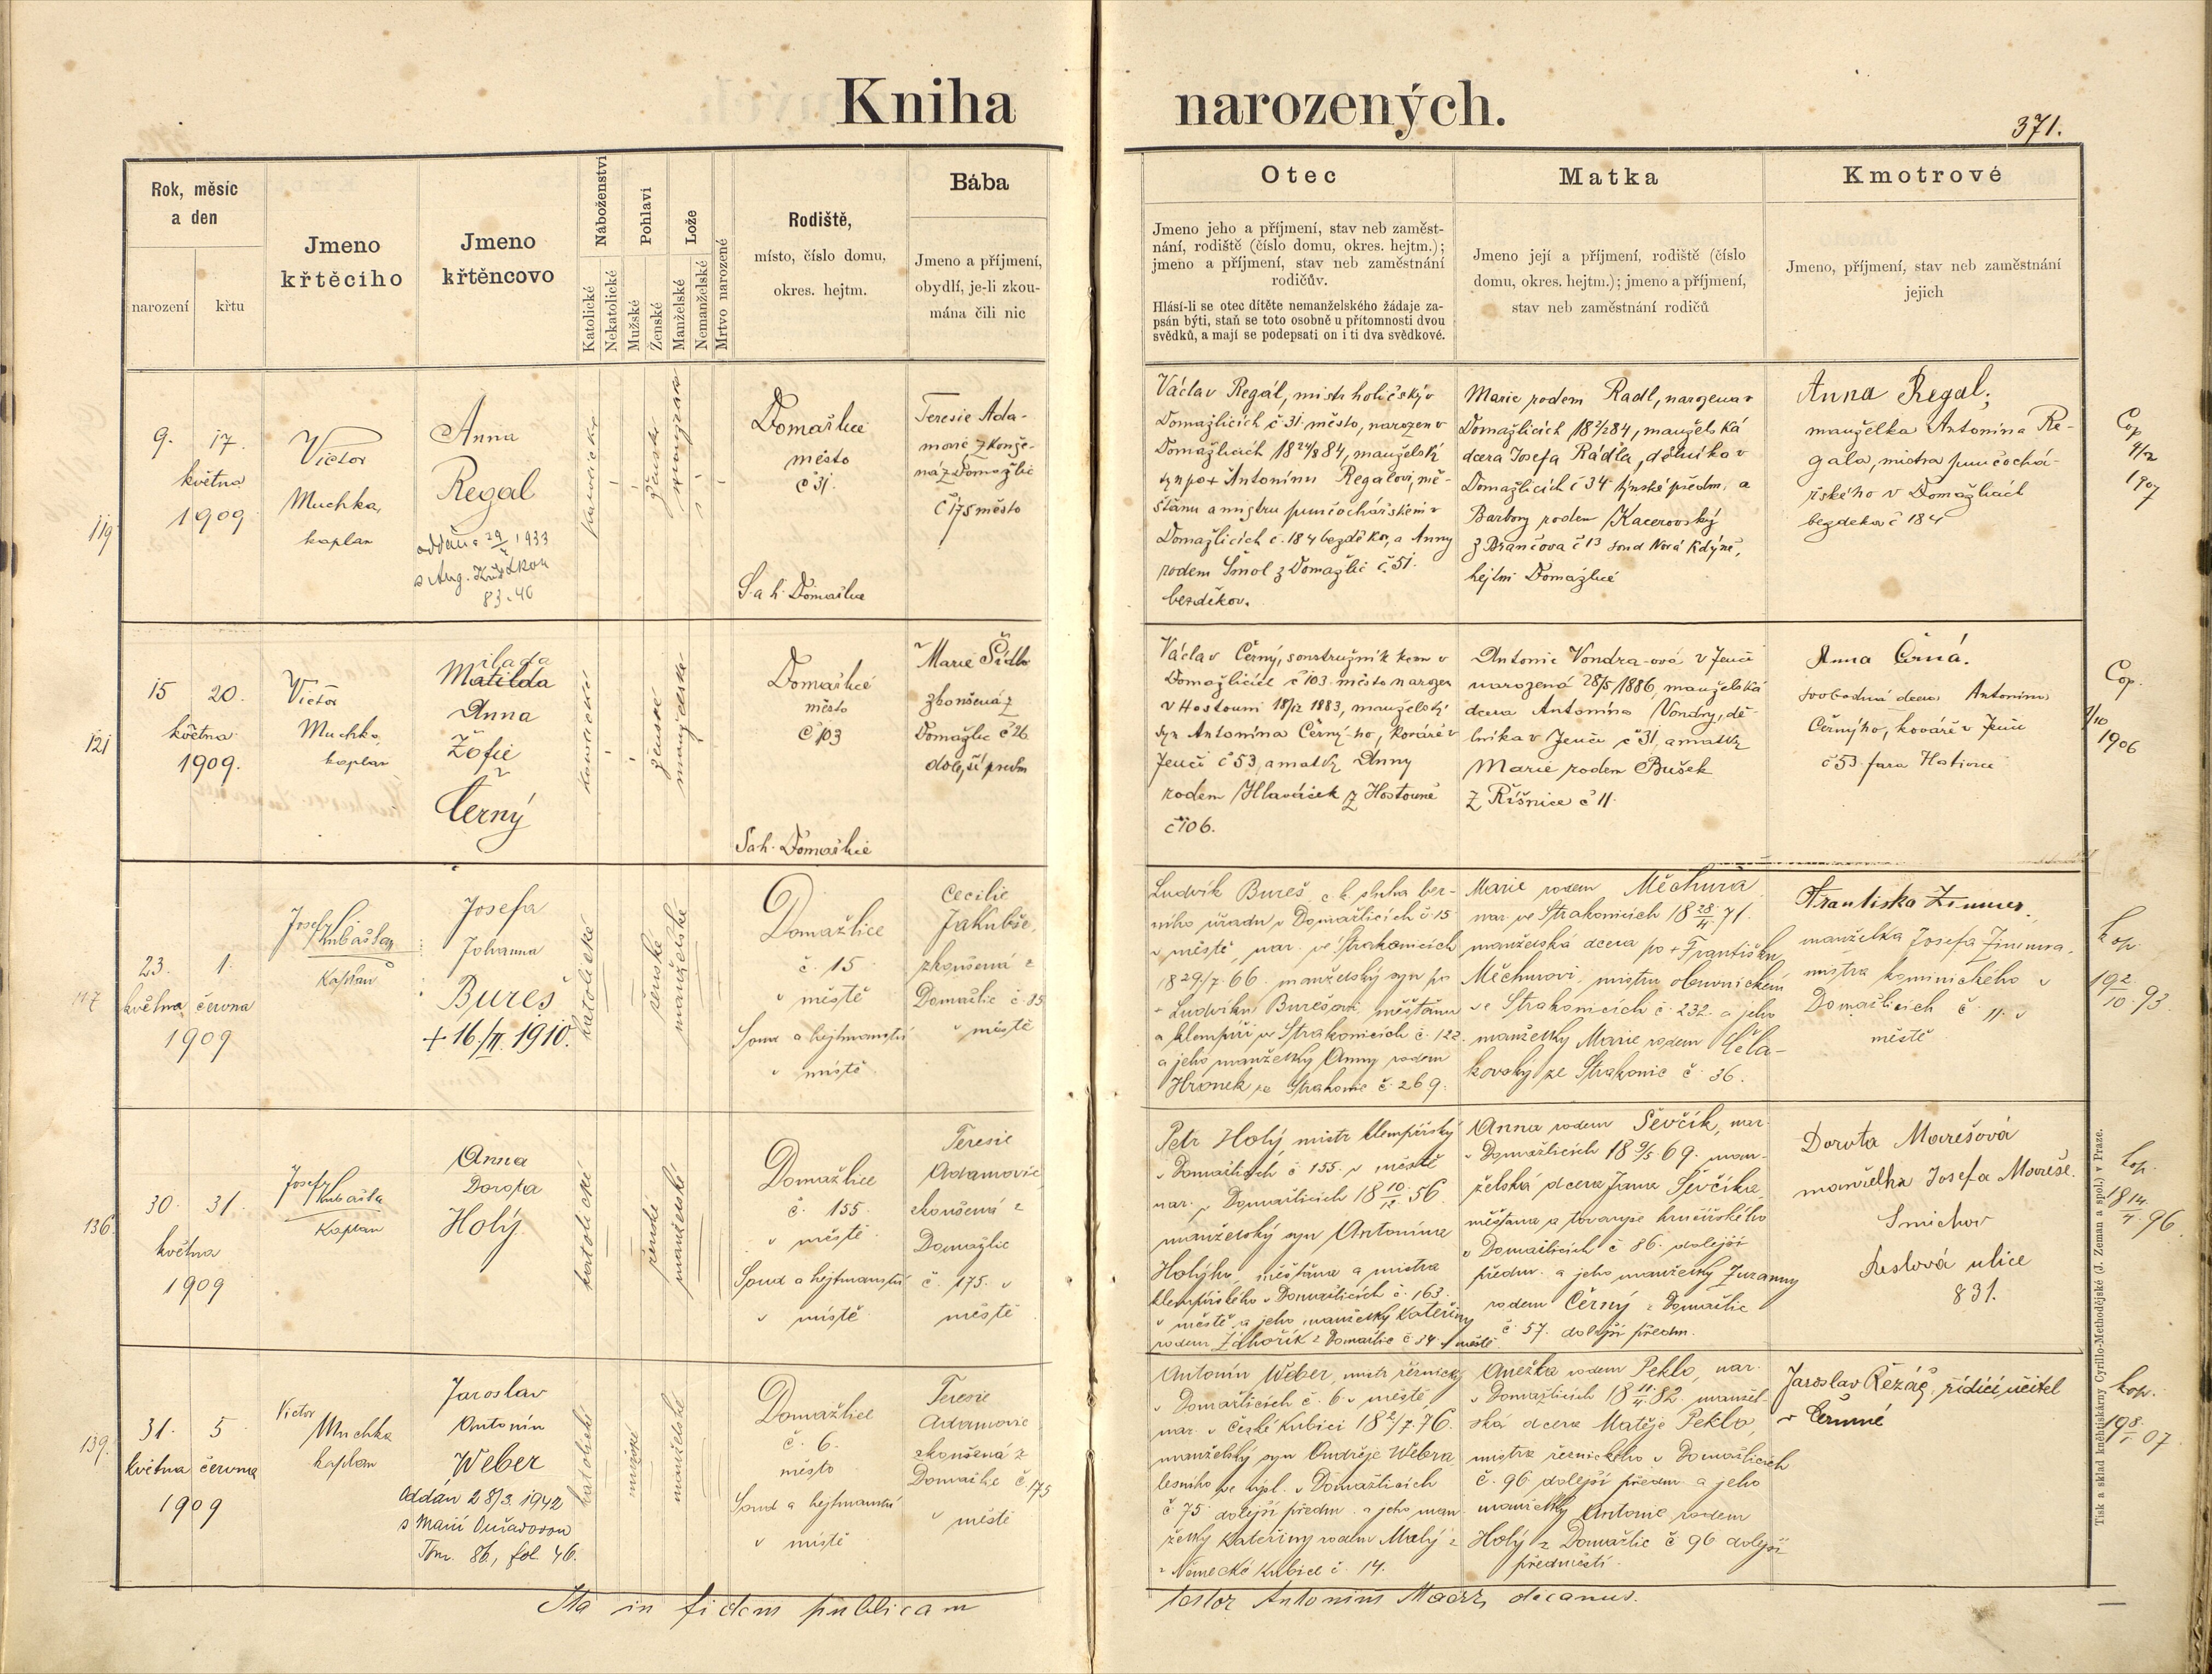 Kniha narozených.
371.
Rok, měsíc
a den
narození
křtu
Jmeno
křtěcího
Jmeno
křtěncovo
Náboženství
Katolické
Nekatolické
Pohlaví
Mužské
Ženské
Lože
Manželské
Nemanželské
Mrtvo narozené
Rodiště,
místo, číslo domu,
okres. hejtm.
Bába
Jmeno a příjmení,
obydlí, je-li zkou-
mána čili nic
Otec
Jmeno jeho a příjmení, stav neb zaměst-
nání, rodiště (číslo domu, okres. hejtm.);
jmeno a příjmení, stav neb zaměstnání
rodičův.
Hlásí-li se otec dítěte nemanželského žádaje za-
psán býti, staň se toto osobně u přítomnosti dvou
svědků, a mají se podepsati on i ti dva svědkové.
Matka
Jmeno její a příjmení, rodiště (číslo
domu, okres. hejtm.); jmeno a příjmení,
stav neb zaměstnání rodičů
Kmotrové
Jmeno, příjmení, stav neb zaměstnání
jejich
119
9. 17.
května
1909
Victor
Muchka,
kaplan
Anna
Regal
oddána 29/ 1933
s Aug.
83. 46
ženské
Domažlice
město
č 31.
S. a h. Domažlice
Teresie Ada-
z Domažlic
č 175 město
Václav Regál, mistr holičský v
Domažlicích č 31. město, narozen v
Domažlicích 18 24/8 84, manželský
syn po + Antonínu Regalovi, mě-
šťanu a mistru punčochářském v
Domažlicích č. 184 bezděkov, a Anny
rodem Šmol z Domažlic č. 51.
bezděkov.
Marie rodem Radl, narozena v
Domažlicích 18 2/2 84, manželská
dcera Josefa Rádla, dělníka v
Domažlicích č 34 týnské předm. a
Barbory rodem Kacerovský
z Brančova č 13 soud Nová Kdýně,
hejtm Domažlice
Anna Regal,
manželka Antonína Re-
gala, mistra punčochá-
řského v Domažlicích
bezděkov č 184
Cop
4/2
1907
121
15 20.
května
1909.
Victor
Muchka
kaplan
Milada
Matilda
Anna
Žofie
Černý
ženské
manželské
Domažlice
město
č 103
S a h. Domažlice
Marie Šídlo
zkoušená z
Domažlic č 26
dolejší předm
Václav Černý, soustružník kovu v
Domažlicích č 103. město narozen
v Hostouni 18/12 1883, manželský
syn Antonína Černý-ho, kováře v
Jenči č 53, a matky Anny
rodem Hlaváček z Hostouně
č 106.
Antonie Vondra-ová v Jenči
narozená 28/5 1886, manželská
dcera Antonína Vondry, dě-
lníka v Jenči č 31, a matky
Marie rodem Bušek
z Říšnice č 11.
Anna Černá.
svobodná dcera Antonína
Černýho, kováře v Jenči
č 53 fara
Cop.
1/10
1906
23. 1.
května června
1909
Josef
Kubaštan
Kaplan
Josefa
Johanna
Bureš
+ 16./II. 1910.
katolické
ženské
manželské
Domažlice
č. 15
v městě
Soud a hejtmanství
v místě
Cecilie
Jakubše,
zkoušená z
Domažlic č. 35
v městě
Ludvík Bureš c. k. sluha ber-
ního úřadu v Domažlicích č. 15
v městě, nar. ve Strakonicích
18 29/7 66. manželský syn po
+ Ludvíku Burešovi, měšťanu
a klempíři ve Strakonicích č. 122.
a jeho manželky Anny rodem
Hronek ze Strakonic č. 269.
Marie rodem Měchura
nar. ve Strakonicích 18 28/4 71.
manželská dcera po + Františku
Měchurovi, mistru obuvnickém
ve Strakonicích č. 232. a jeho
manželky Marie rodem Čela-
kovský ze Strakonic č. 36.
Františka Zimmer.
manželka Josefa Zimmra,
mistra kominického v
Domažlicích č. 11. v
městě
kop.
19 2/10 93.
136.
30. 31.
května
1909
Josef
Kubašta
Kaplan
Anna
Dorota
Holý
katolické
ženské
manželské
Domažlice
č. 155.
v městě
Soud a hejtmanství
v místě
Teresie
Adamovic
zkoušená z
Domažlic
č. 175. v
městě
Petr Holý mistr klempířský
v Domažlicích č 155. v městě
nar. v Domažlicích 18 10/12 56.
manželský syn Antonína
Holýho, měšťana a mistra
klempířského v Domažlicích č. 163.
v městě a jeho manželky Kateřiny
rodem Záhořík z Domažlic č 34. v městě
Anna rodem Ševčík, nar.
v Domažlicích 18 9/5 69. man-
želská dcera Jana Ševčíka,
měšťana a tovaryše hrnčířského
v Domažlicích č 86. dolejší
předm. a jeho manželky Zuzanny
rodem Černý z Domažlic
č 57. dolejší předm.
Dorota Marešová
manželka Josefa Mareše.
Smichov
Reslová ulice
831.
kop.
18 14/4 96.
139.
31. 5
května června
1909
Victor
Muchka
kaplan
Jaroslav
Antonín
Weber
Oddán 28/3. 1942
s Marií
Tom. 86, fol. 46.
katolické
mužské
manželské
Domažlice
č. 6.
město
Soud a hejtmanství
v místě
Teresie
Adamovic
zkoušená z
Domažlic č 175
v městě
Antonín Weber, mistr řeznický
v Domažlicích č. 6 v městě
nar. v České Kubici 18 2/7 76.
manželský syn Ondřeje Wěbra,
lesního ve výsl. v Domažlicích
č 75 dolejší předm. a jeho man-
želky Kateřiny rodem Malý z
Německé Kubice č. 14.
Anežka rodem Peklo, nar.
v Domažlicích 18 11/4 82, manžel-
ská dcera Matěje Pekla,
mistra řeznického v Domažlicích
č. 96 dolejší předm a jeho
manželky Antonie rodem
Holý z Domažlic č 96 dolejší
předměstí.
Jaroslav Řezáč, řídící učitel
v Čermné
kop.
19 8/1 07.
Ita in fidem publicam
testor Antonius decanus.
Tisk a sklad kněhtiskárny Cyrillo-Methodějské (J. Zeman a spol.) v Praze.